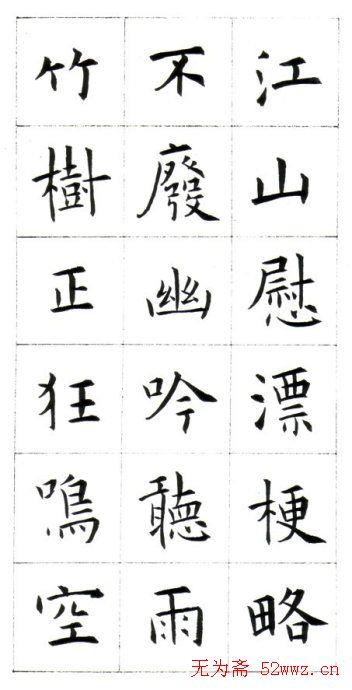 江山慰漂梗略
不廢幽吟聽雨
竹樹正狂鳴空
无为斋 52wwz.cn